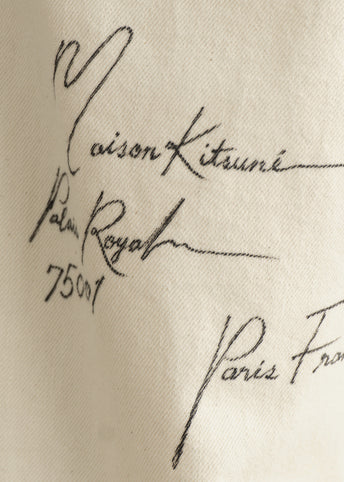 Maison Kitsuné
Palais Royal
75001
Paris Fra